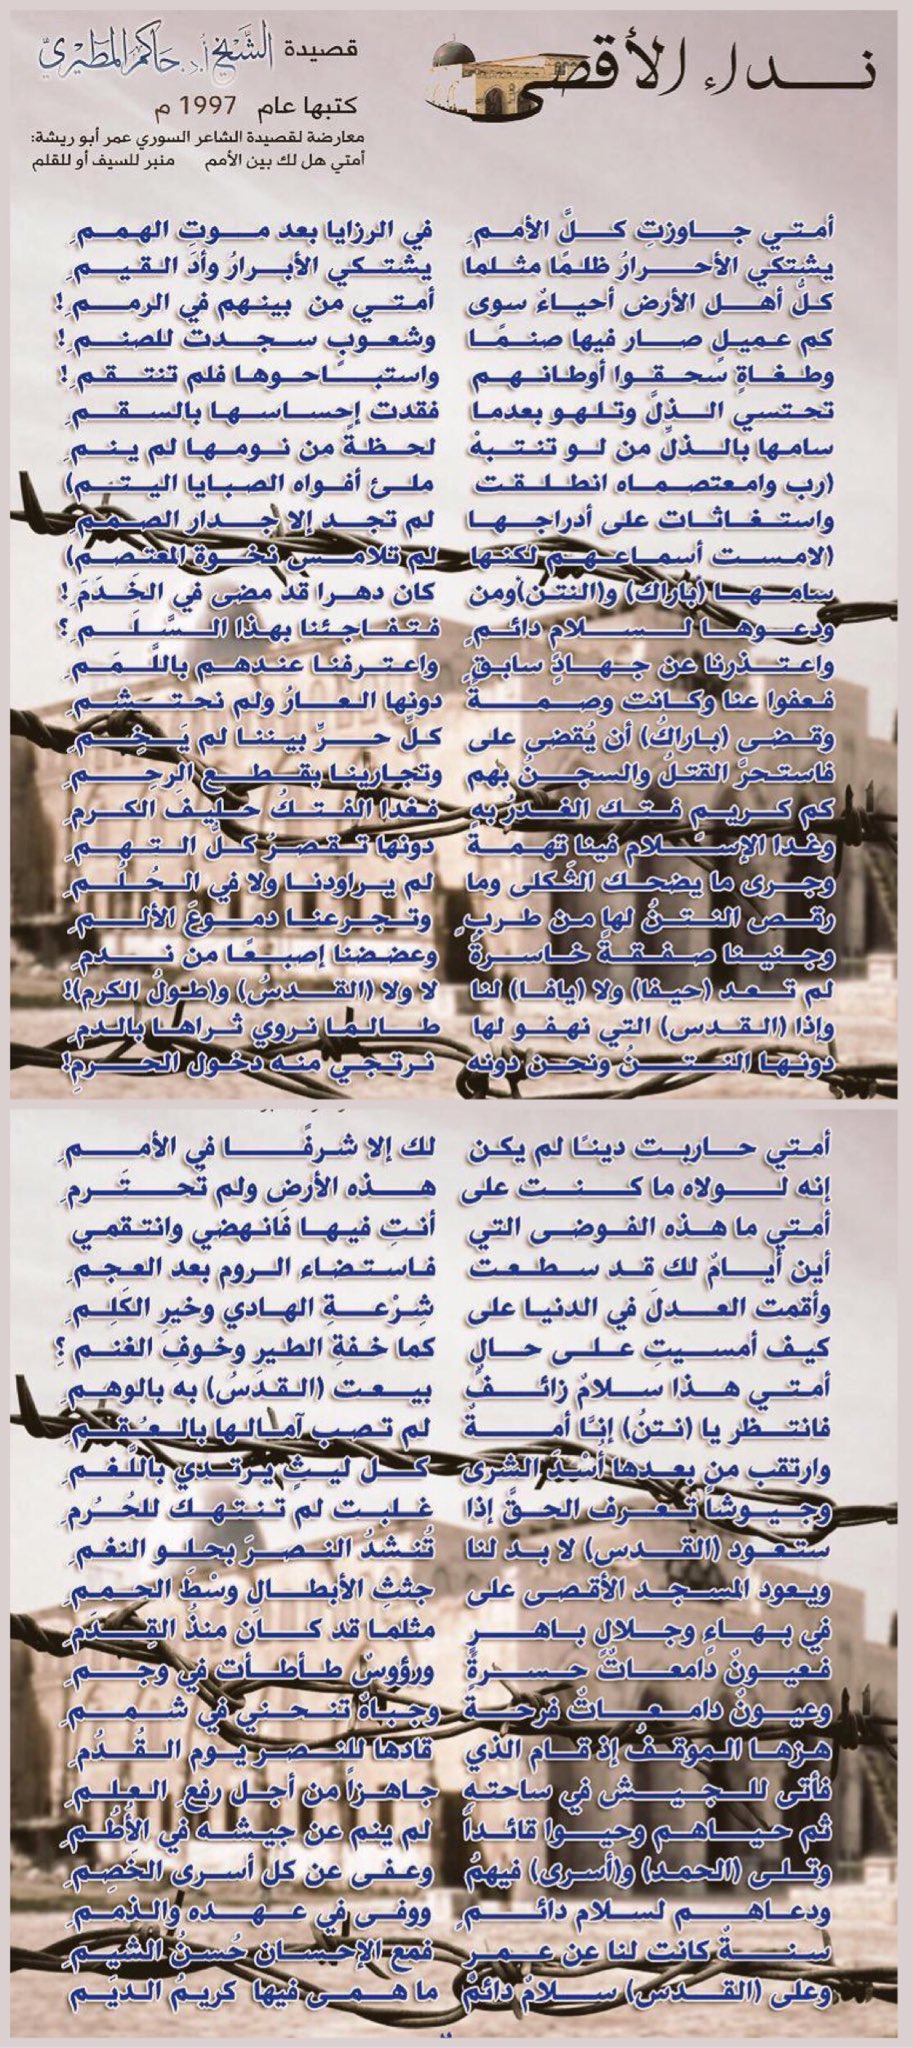 نداء الأقصى
قصيدة الشيخ أ.د. حاكم المطيري
كتبها عام 1997 م
معارضة لقصيدة الشاعر السوري عمر أبو ريشة:
أمتي هل لك بين الأمم منبر للسيف أو للقلم
أمتي جاوزتِ كلَّ الأممِ في الرزايا بعد موتِ الهممِ
يشتكي الأحرارُ ظلمًا مثلما يشتكي الأبرارُ وأدَ القيمِ
كلُّ أهل الأرض أحياءٌ سوى أمتي من بينهم في الرممِ!
كم عميلٍ صار فيها صنمًا وشعوبٍ سجدت للصنمِ!
وطغاةٍ سحقوا أوطانهم واستباحوها فلم تنتقمِ!
تحتسي الذلَّ وتلهو بعدما فقدت إحساسها بالسقمِ
سامها بالذلِّ من لو تنتبهْ لحظةً من نومها لم ينمِ
(رب وامعتصماه انطلقت ملئ أفواه الصبايا اليتم)
واستغاثات على أدراجها لم تجد إلا جدار الصممِ
(لامست أسماعهم لكنها لم تلامس نخوة المعتصم)
سامها (باراك) و(النتن) ومن كان دهرا قد مضى في الخَدَمِ!
ودعوها لسلام دائمٍ فتفاجئنا بهذا السَّلَمِ؟
واعتذرنا عن جهادٍ سابقٍ واعترفنا عندهم باللَّمَمِ
فعفوا عنا وكانت وصمةً دونها العارُ ولم نحتشمِ
وقضى (باراكُ) أن يُقضى على كلِّ حرٍّ بيننا لم يَخِمِ
فاستحرَّ القتلُ والسجنُ بهم وتجارينا بقطعِ الرحِمِ
كم كريمٍ فتك الغدرُ بهِ فغدا الفتكُ حليفَ الكرمِ
وغدا الإسلام فينا تهمةً دونها تقصرُ كلُّ التهمِ
وجرى ما يضحك الثكلى وما لم يراودنا ولا في الحُلُمِ
رقص النتنُ لها من طربٍ وتجرعنا دموعَ الألمِ
وجنينا صفقةً خاسرةً وعضضنا إصبعًا من ندمِ
لم تعد (حيفا) ولا (يافا) لنا لا ولا (القدسُ) و(طولُ الكرم)!
وإذا (القدس) التي نهفو لها طالما نروي ثراها بالدمِ
دونها النتنُ ونحن دونه نرتجي منه دخول الحرمِ!
أمتي حاربت دينًا لم يكن لك إلا شرفًا في الأممِ
إنه لولاه ما كنت على هذه الأرض ولم تحتَرمِ
أمتي ما هذه الفوضى التي أنتِ فيها فانهضي وانتقمي
أين أيامٌ لك قد سطعت فاستضاء الروم بعد العجمِ
وأقمت العدلَ في الدنيا على شِرْعةِ الهادي وخيرِ الكَلِمِ
كيف أمسيتِ على حالٍ كما خفةِ الطيرِ وخوفِ الغنمِ؟
أمتي هذا سلامٌ زائفٌ بيعت (القدسُ) به بالوهمِ
فانتظر يا (نتنُ) إنَّا أمةٌ لم تصب آمالها بالعُقمِ
وارتقب من بعدها أُسْدَ الشرى كل ليثٍ يرتدي باللَّغمِ
وجيوشاً تعرف الحقَّ إذا غلبت لم تنتهك للحُرمِ
ستعود (القدس) لا بد لنا تُنشدُ النصرَ بحلو النغمِ
ويعود المسجد الأقصى على جثثِ الأبطالِ وسْطَ الحممِ
في بهاءٍ وجلالٍ باهرٍ مثلما قد كان منذُ القِدَمِ
فعيونٌ دامعاتٌ حسرةً ورؤوسٌ طأطأت في وجمِ
وعيونٌ دامعاتٌ فرحةً وجباهٌ تنحني في شممِ
هزها الموقفُ إذ قام الذي قادها للنصر يوم القُدُمِ
فأتى للجيش في ساحتهِ جاهزاً من أجل رفعِ العلمِ
ثم حياهم وحيوا قائداً لم ينم عن جيشه في الأُطُمِ
وتلى (الحمد) و(أسرى) فيهمُ وعفى عن كل أسرى الخَصِمِ
ودعاهم لسلام دائمٍ ووفى في عهده والذممِ
سنةٌ كانت لنا عن عمرٍ فمع الإحسان حُسنُ الشيمِ
وعلى (القدس) سلامٌ دائمٌ ما همى فيها كريمُ الديَم